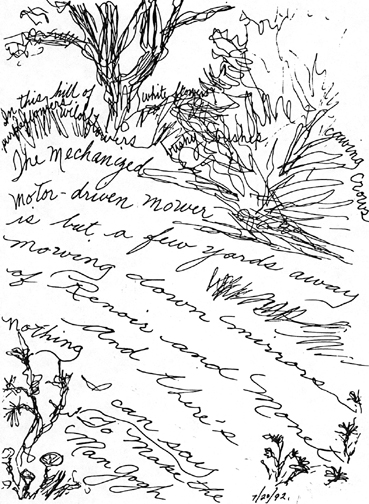 In this hill of
white flowers
purple flowers wildflowers
bushes
cawing crows
The Mechanized
motor-driven mower
is but a few yards away
mowing down mirrors
of Renoir and Monet
And there's
nothing
I can say
To Make the
Man gogh
7/20/92.